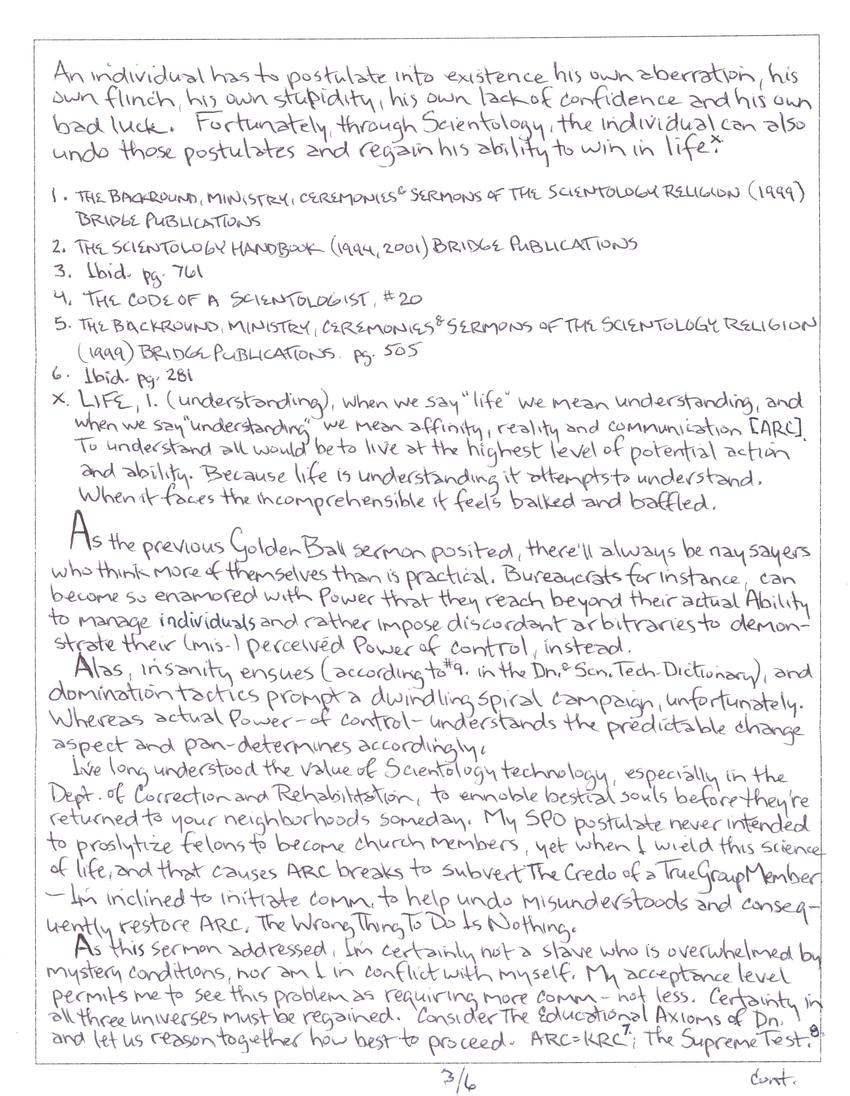 An individual has to postulate into existence his own aberration, his
own flinch, his own stupidity, his own lack of confidence and his own
bad luck. Fortunately, through Scientology, the individual can also
undo those postulates and regain his ability to win in life.x
1. THE BACKROUND, MINISTRY, CEREMONIES & SERMONS OF THE SCIENTOLOGY RELIGION (1999)
BRIDGE PUBLICATIONS
2. THE SCIENTOLOGY HANDBOOK (1994, 2001) BRIDGE PUBLICATIONS
3. Ibid. pg. 761
4. THE CODE OF A SCIENTOLOGIST, #20
5. THE BACKROUND, MINISTRY, CEREMONIES & SERMONS OF THE SCIENTOLOGY RELIGION
(1999) BRIDGE PUBLICATIONS. pg. 505
6. Ibid. pg. 281
x. LIFE, 1. (understanding), when we say "life" we mean understanding, and
when we say "understanding" we mean affinity, reality and communication [ARC].
To understand all would be to live at the highest level of potential action
and ability. Because life is understanding it attempts to understand.
When it faces the incomprehensible it feels balked and baffled.
As the previous Golden Ball sermon posited, there'll always be nay sayers
who think more of themselves than is practical. Bureaucrats for instance, can
become so enamored with Power that they reach beyond their actual Ability
to manage individuals and rather impose discordant arbitraries to demon-
strate their (mis-) perceived Power of control, instead.
Alas, insanity ensues (according to #9. in the Dn. & Scn. Tech. Dictionary), and
domination tactics prompt a dwindling spiral campaign, unfortunately.
Whereas actual Power - of control - understands the predictable change
aspect and pan-determines accordingly.
I've long understood the value of Scientology technology, especially in the
Dept. of Correction and Rehabilitation, to ennoble bestial souls before they're
returned to your neighborhoods someday. My SPO postulate never intended
to proslytize felons to become church members, yet when I wield this science
of life, and that causes ARC breaks to subvert The Credo of a True Group Member
- I'm inclined to initiate comm. to help undo misunderstoods and conseq-
uently restore ARC. The Wrong Thing To Do Is Nothing.
As this sermon addressed, I'm certainly not a slave who is overwhelmed by
mystery conditions, nor am I in conflict with myself. My acceptance level
permits me to see this problem as requiring more comm - not less. Certainty in
all three universes must be regained. Consider The Educational Axioms of Dn.
and let us reason together how best to proceed. ARC=KRC7; The Supreme Test.8
3/6 cont.